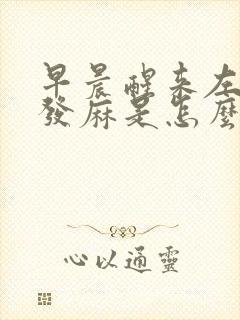 早晨醒來左
發麻是怎麼
心以通靈